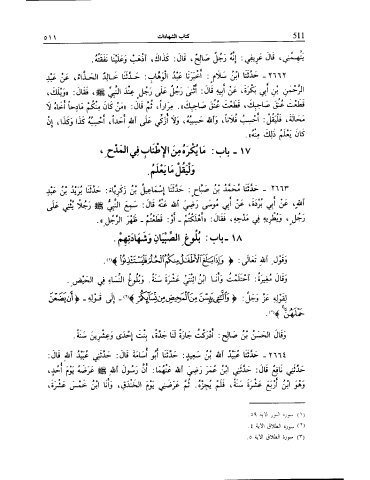 511 كتاب الشهادات ٥١١
يَتَّهِمُنِي، قَالَ عَرِيفِي: إِنَّهُ رَجُلٌ صَالِحٌ، قَالَ: كَذَاكَ، اذْهَبْ وَعَلَيْنَا نَفَقَتُهُ.
٢٦٦٢ - حَدَّثَنَا ابْنُ سَلَامٍ: أَخْبَرَنَا عَبْدُ الْوَهَّابِ: حَدَّثَنَا خَالِدٌ الْحَذَّاءُ، عَنْ عَبْدِ
الرَّحْمَنِ بْنِ أَبِي بَكْرَةَ، عَنْ أَبِيهِ قَالَ: أَثْنَى رَجُلٌ عَلَى رَجُلٍ عِنْدَ النَّبِيِّ ﷺ، فَقَالَ: «وَيْلَكَ،
قَطَعْتَ عُنُقَ صَاحِبِكَ، قَطَعْتَ عُنُقَ صَاحِبِكَ»، مِرَارًا، ثُمَّ قَالَ: «مَنْ كَانَ مِنْكُمْ مَادِحًا أَخَاهُ لَا
مَحَالَةَ، فَلْيَقُلْ: أَحْسِبُ فُلَانًا، وَاللهُ حَسِيبُهُ، وَلَا أُزَكِّي عَلَى اللهِ أَحَدًا، أَحْسِبُهُ كَذَا وَكَذَا، إِنْ
كَانَ يَعْلَمُ ذَلِكَ مِنْهُ».
١٧ - باب: مَا يُكْرَهُ مِنَ الْإِطْنَابِ فِي الْمَدْحِ،
وَلْيَقُلْ مَا يَعْلَمُ.
٢٦٦٣ - حَدَّثَنَا مُحَمَّدُ بْنُ صَبَّاحٍ: حَدَّثَنَا إِسْمَاعِيلُ بْنُ زَكَرِيَّاءَ: حَدَّثَنَا بُرَيْدُ بْنُ عَبْدِ
اللهِ، عَنْ أَبِي بُرْدَةَ، عَنْ أَبِي مُوسَى رَضِيَ اللهُ عَنْهُ قَالَ: سَمِعَ النَّبِيُّ ﷺ رَجُلًا يُثْنِي عَلَى
رَجُلٍ، وَيُطْرِيهِ فِي مَدْحِهِ، فَقَالَ: «أَهْلَكْتُمْ - أَوْ: قَطَعْتُمْ - ظَهْرَ الرَّجُلِ».
١٨ - باب: بُلُوغِ الصِّبْيَانِ وَشَهَادَتِهِمْ.
وَقَوْلِ اللهِ تَعَالَى: ﴿وَإِذَا بَلَغَ الْأَطْفَالُ مِنْكُمُ الْحُلُمَ فَلْيَسْتَأْذِنُوا﴾(١).
وَقَالَ مُغِيرَةُ: احْتَلَمْتُ وَأَنَا ابْنُ اثْنَتَيْ عَشْرَةَ سَنَةً. وَبُلُوغُ النِّسَاءِ فِي الْحَيْضِ،
لِقَوْلِهِ عَزَّ وَجَلَّ: ﴿وَاللَّائِي يَئِسْنَ مِنَ الْمَحِيضِ مِنْ نِسَائِكُمْ﴾(٢) - إِلَى قَوْلِهِ - ﴿أَنْ يَضَعْنَ
حَمْلَهُنَّ﴾(٣).
وَقَالَ الْحَسَنُ بْنُ صَالِحٍ: أَدْرَكْتُ جَارَةً لَنَا جَدَّةً، بِنْتَ إِحْدَى وَعِشْرِينَ سَنَةً.
٢٦٦٤ - حَدَّثَنَا عُبَيْدُ اللهِ بْنُ سَعِيدٍ: حَدَّثَنَا أَبُو أُسَامَةَ قَالَ: حَدَّثَنِي عُبَيْدُ اللهِ قَالَ:
حَدَّثَنِي نَافِعٌ قَالَ: حَدَّثَنِي ابْنُ عُمَرَ رَضِيَ اللهُ عَنْهُمَا: أَنَّ رَسُولَ اللهِ ﷺ عَرَضَهُ يَوْمَ أُحُدٍ،
وَهُوَ ابْنُ أَرْبَعَ عَشْرَةَ سَنَةً، فَلَمْ يُجِزْهُ، ثُمَّ عَرَضَنِي يَوْمَ الْخَنْدَقِ، وَأَنَا ابْنُ خَمْسَ عَشْرَةَ،
(١) سورة النور الآية ٥٩.
(٢) سورة الطلاق الآية ٤.
(٣) سورة الطلاق الآية ٥.